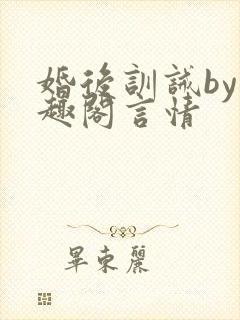 婚後訓誡by
趣閣言情
畢東麗